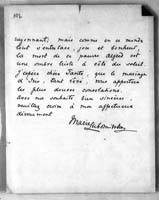 rayonnant, mais comme en ce monde
tout s'entrelace, joie et bonheur,
la mort de ce pauvre Alfred est
une ombre triste à côté du soleil.
J'espère chère Tante, que le mariage
d' tant rêvé, vous apportera
les plus douces consolations.
avec nos souhaits bien sincères,
veuillez croire à mon affectueux
dévouement
Marie